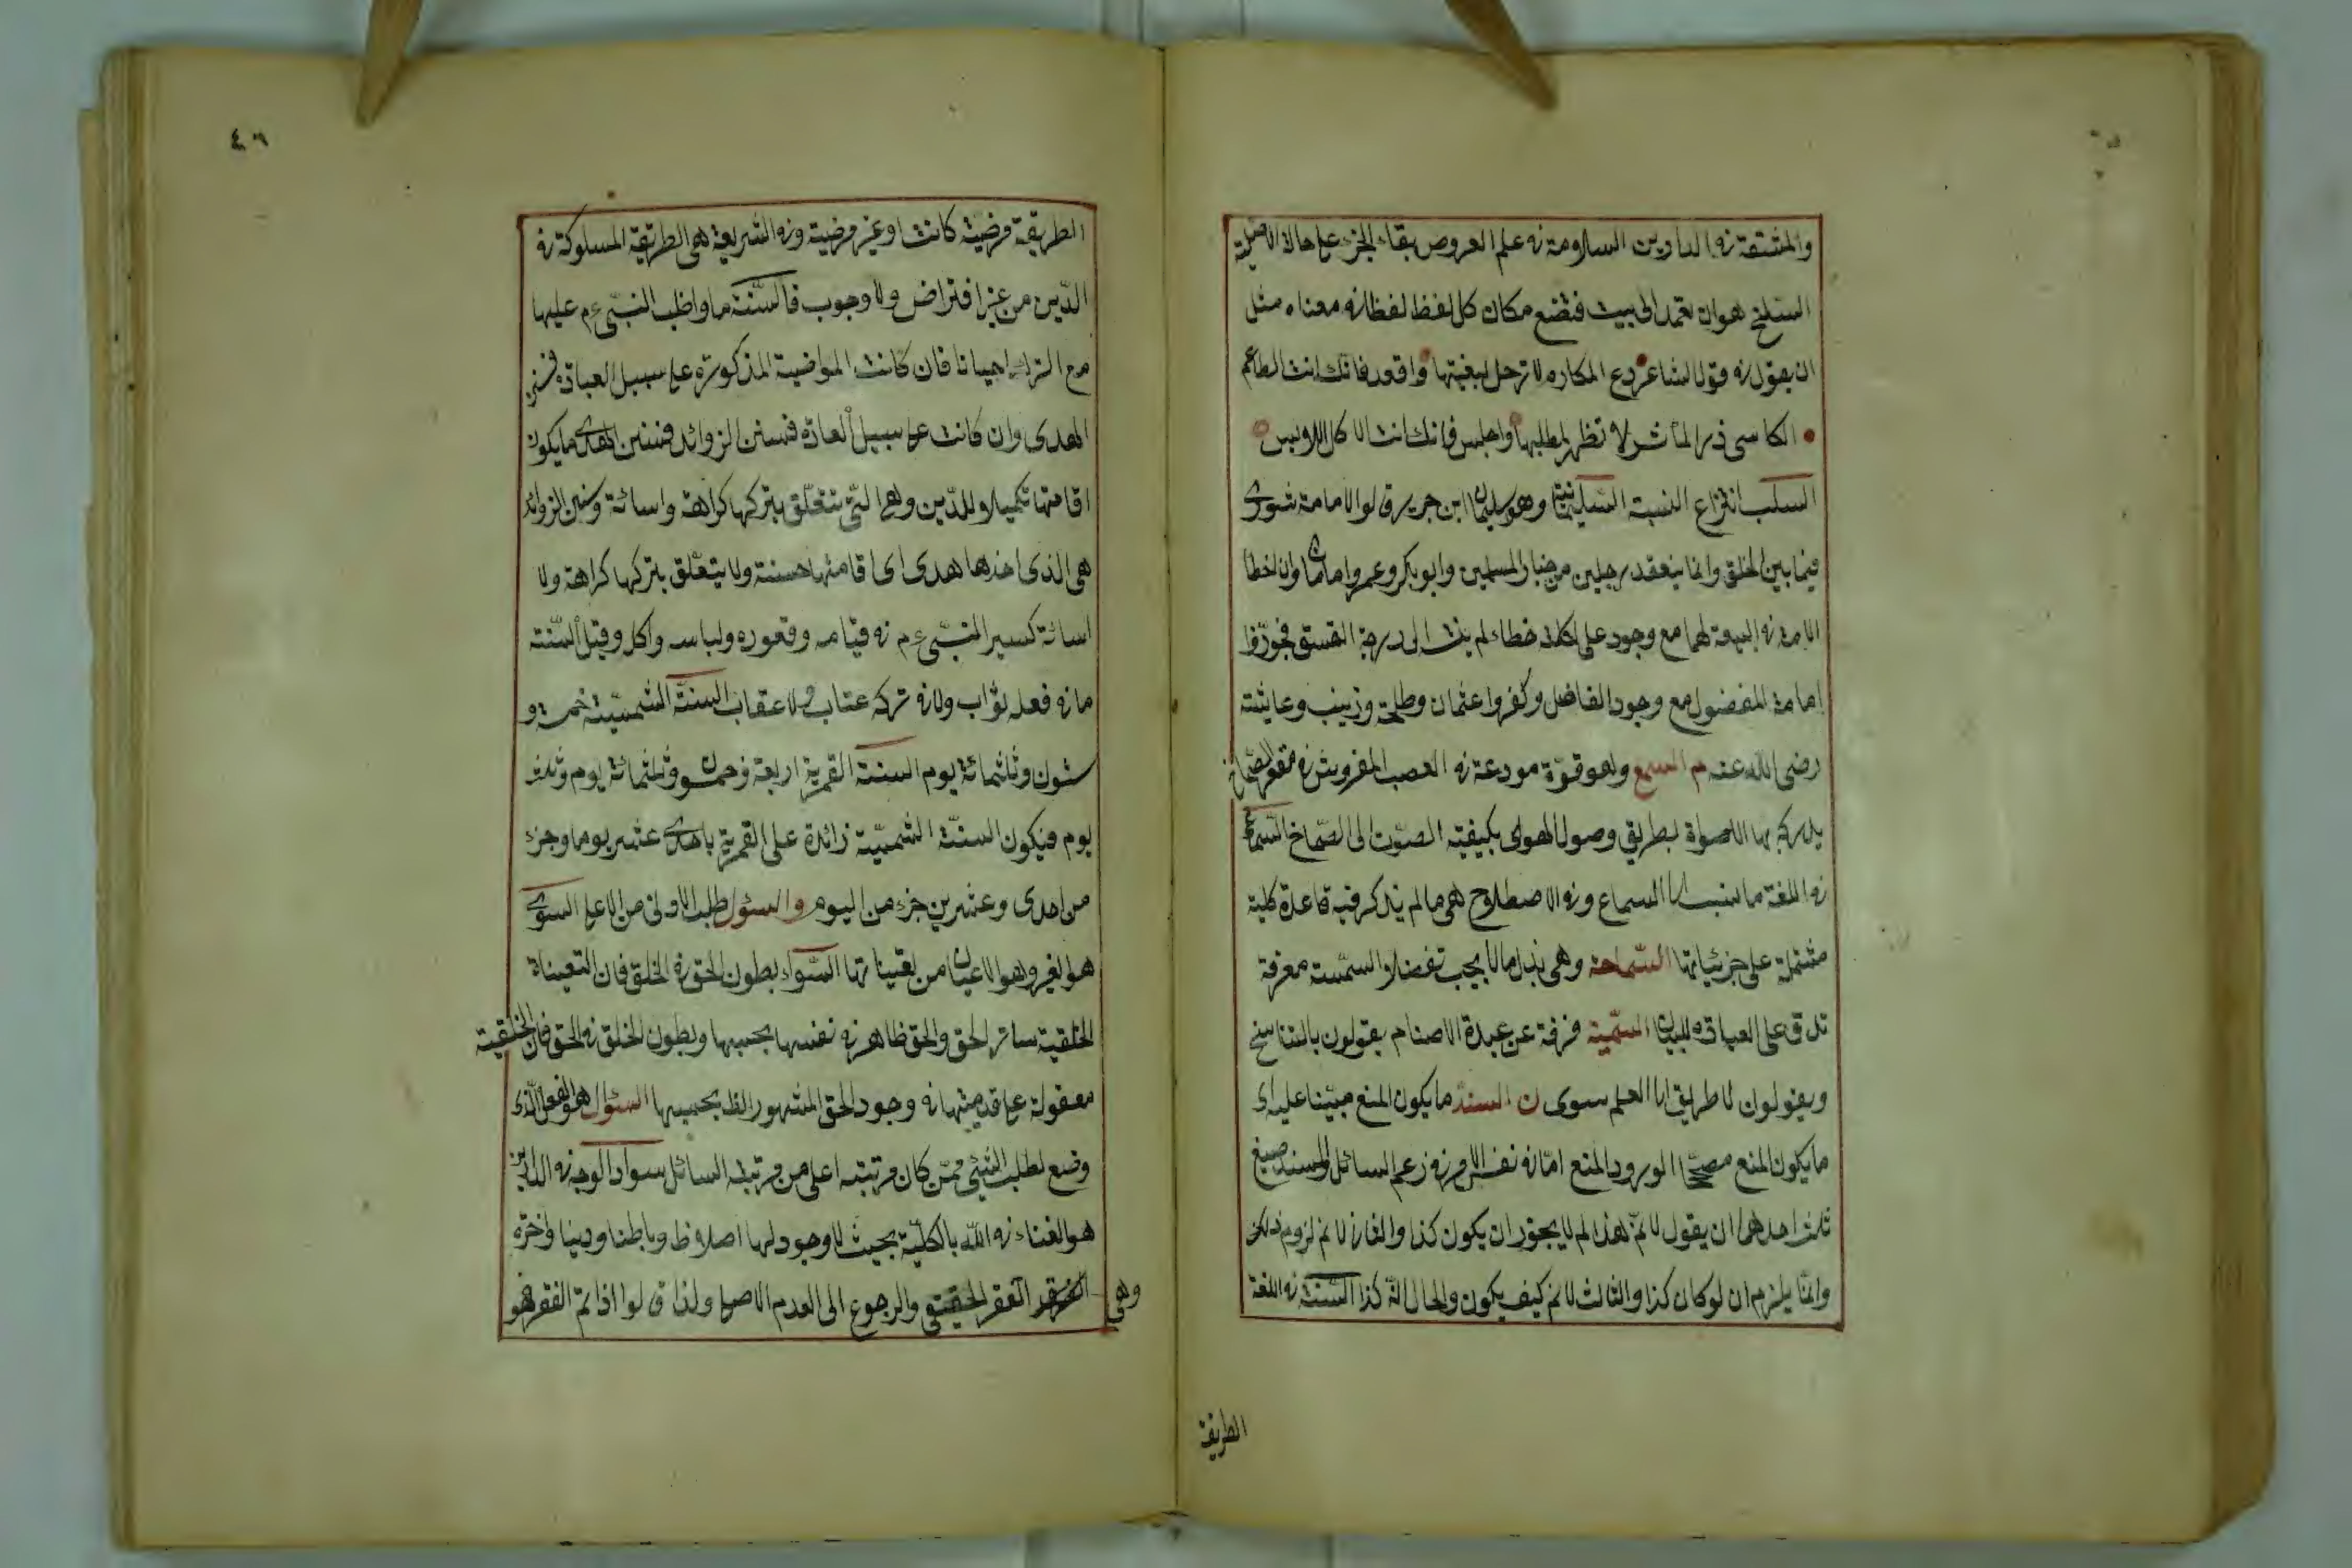 والمشقة في الدارين السلامة في علم العروض بقاء الجزء على حالة الاصلية
السلخ هو ان تعمد الى بيت فتضع مكان كل لفظ لفظا في معناه مثل
ان يقول في قول الشاعر دع المكارم لا ترحل لبغيتها واقعد فانك انت الطاعم
الكاسى ذر المأثر لا تظهر لمطلبها واجلس فانك انت الاكل اللابس
السلب انتزاع النسبة السليمانية وهو سليمان ابن جرير قالوا الامامة شورى
فيما بين الخلق وانما ينعقد برجلين من خيار المسلمين وابو بكر وعمر امامان وان اخطا
الامة في البيعة لهما مع وجود على لكنه خطاء لم ينته الى درجة الفسق فجوزوا
امامة المفضول مع وجود الفاضل وكفروا عثمان وطلحة وزينب وعايشة
رضى الله عنه م السمع وهو قوة مودعة في العصب المفروش في مقعر الصماخ
يدرك بها الاصواة بطريق وصول الهوى بكيفية الصوت الى الصماخ السماعى
في اللغة ما نسب الى السماع وفي الاصطلاح هى ما لم يذكر فيه قاعدة كلية
مشتملة على جزئياتها السماحة وهى بذل ما لا يجب تفضلا السمسمة معرفة
تدق على العباقه للبيان السمنية فرقة عن عبدة الاصنام يقولون بالتناسخ
ويقولون لا طريق الى العلم سوى ن السند ما يكون المنع مبينا عليه اى
ما يكون المنع مصححا لورود المنع اما في نفس الامر في زعم السائل وللسند صيغ
ثلث احدها ان يقول لانم هذا لم لا يجوز ان يكون كذا والثانى لا نم لزوم ذلك
وانما يلزم ان لو كان كذا والثالث لا نم كيف يكون والحال انه كذا السنة في اللغة
الطريقة
٤٠٦
الطريقة مرضية كانت او غير مرضية وفي الشريعة هى الطريقة المسلوكة في
الدين من غير افتراض ولا وجوب فالسنة ما واظب النبى ع م عليها
مع الترك احيانا فان كانت المواضبة المذكورة على سبيل العبادة فسنن
الهدى وان كانت على سبيل العادة فسنن الزوائد فسنن الهدى ما يكون
اقامتها تكميلا للدين وهى التى تتعلق بتركها كراهة واسائة وسنن الزوائد
هى الذى اخذها هدى اى اقامتها حسنة ولا يتعلق بتركها كراهة ولا
اسائة كسير النبى ع م في قيامه وقعوده ولباسه واكله وقيل السنة
ما في فعله ثواب ولا في تركه عتاب ولا عقاب السنة الشمسية خمسة و
ستون وثلثمائة يوم السنة القمرية اربعة وخمسون وثلثمائة يوم وثلث
يوم فيكون السنة الشمسية زائدة على القمرية باحدى عشر يوما وجزء
من احدى وعشرين جزء من اليوم والسئول طلب الادنى من الاعلى السوى
هو الغير وهو الاعيان من تعيناتها السواء بطون الحق في الخلق فان التعيناة
الخلقية ساتر الحق والحق ظاهر في نفسها بحسبها وبطون الخلق في الحق فان الخلقية
معقولة على قدميتها في وجود الحق المشهور الظ بحسبها السئوال هو الفعل الذى
وضع لطلب الشيئ ممن كان مرتبته اعلى من مرتبة السائل سواد الوجه في الدارين
هو الفناء في الله بالكلية بحيث لا وجود لها اصلا ظ وباطنا ودنيا واخرة
وهى الفقر الحقيقى والرجوع الى العدم الاصلى ولذا قالوا اذا تم الفقر هو